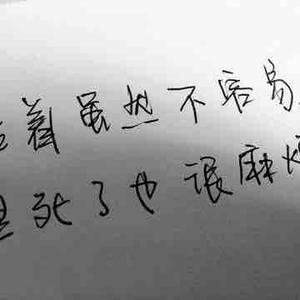 活着虽然不容易
死了也很麻烦